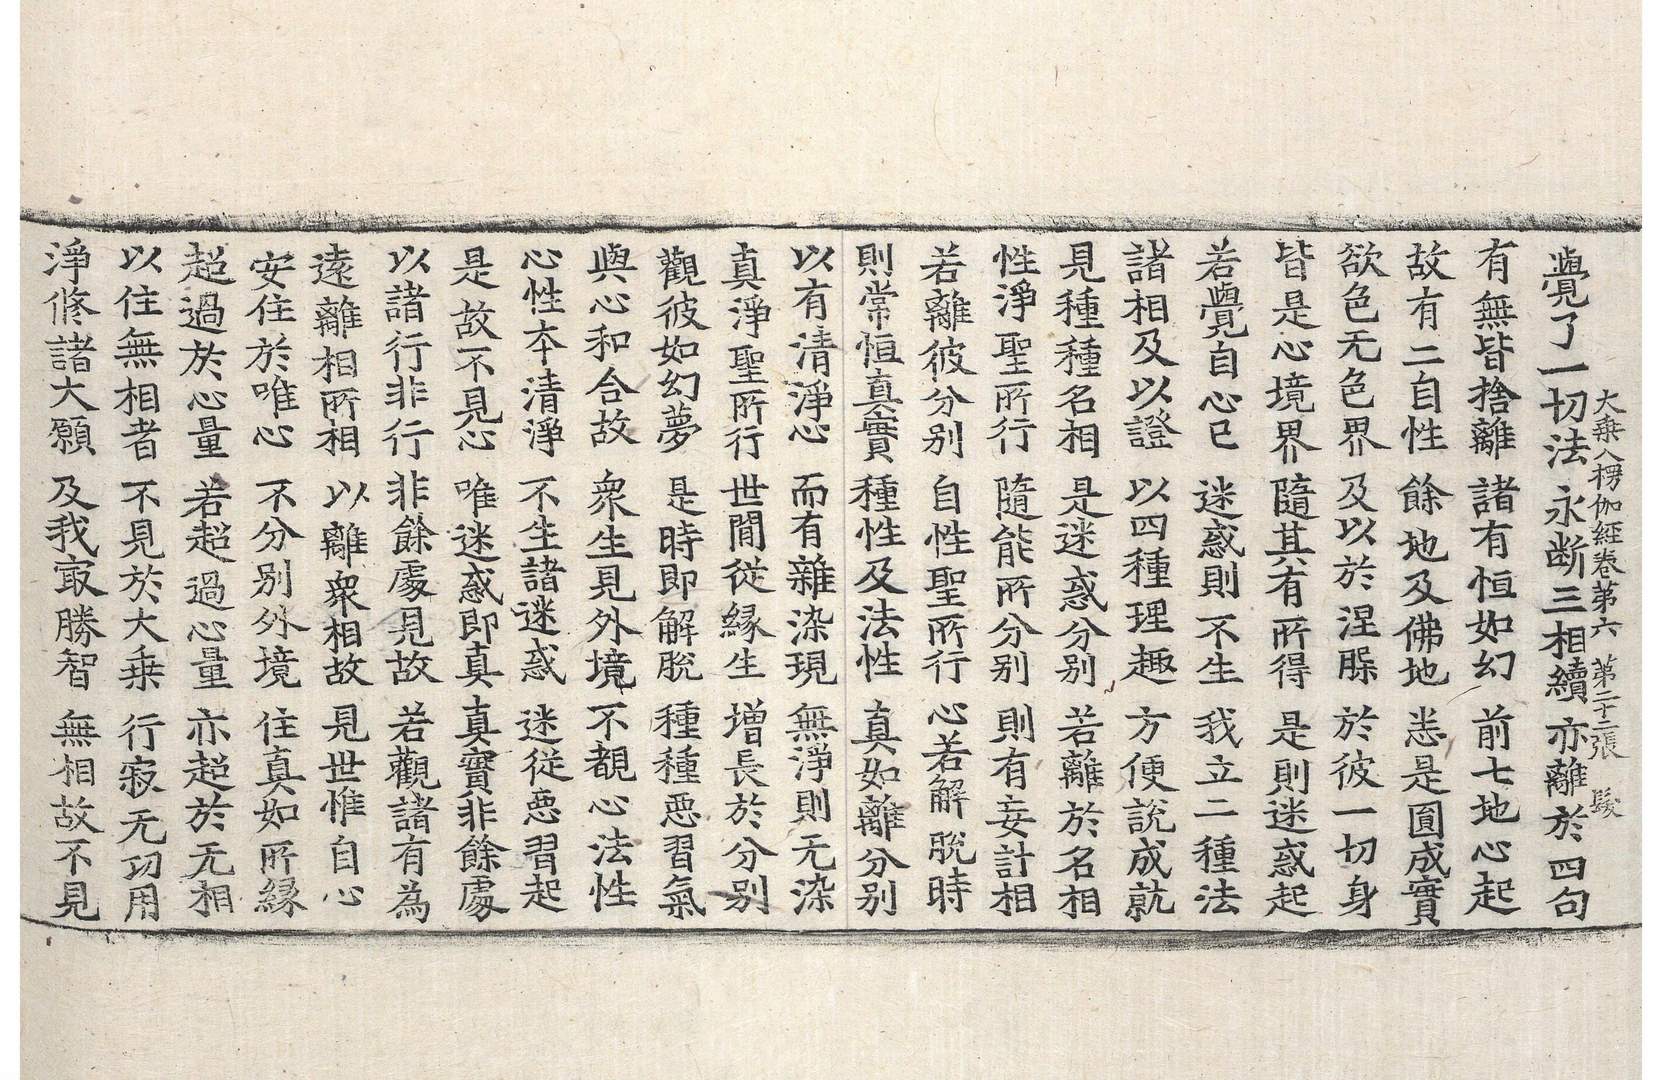 大乗入楞伽経卷第六 第二十二張 髮
覺了一切法 永断三相續 亦離於四句
有無皆捨離 諸有恒如幻 前七地心起
故有二自性 餘地及佛地 悉是圓成實
欲色无色界 及以於涅腺 於彼一切身
皆是心境界 隨其有所得 是則迷惑起
若覺自心已 迷惑則不生 我立二種法
諸相及以證 以四種理趣 方便說成就
見種種名相 是迷惑分別 若離於名相
性淨聖所行 隨能所分別 則有妄計相
若離彼分別 自性聖所行 心若解脫時
則常恒真實 種性及法性 真如離分別
以有清淨心 而有雜染現 無淨則无染
真淨聖所行 世間從緣生 增長於分別
觀彼如幻夢 是時即解脫 種種惡習氣
與心和合故 衆生見外境 不覩心法性
心性本清淨 不生諸迷惑 迷從惡習起
是故不見心 唯迷惑即真 真實非餘處
以諸行非行 非餘處見故 若觀諸有為
遠離相所相 以離衆相故 見世惟自心
安住於唯心 不分別外境 住真如所緣
超過於心量 若超過心量 亦超於无相
以住無相者 不見於大乗 行寂无功用
淨修諸大願 及我㝡勝智 無相故不見